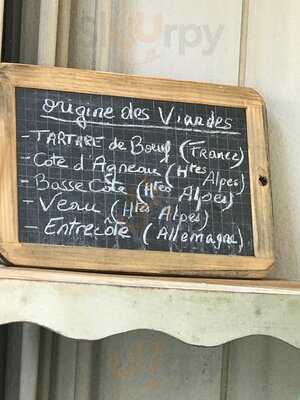 Sluurpy
origine des Viandes
- TARTARE de Bœuf (France)
- Cote d'Agneau (Htes Alpes)
- Basse Côte (Htes Alpes)
- Veau (Htes Alpes)
- Entrecôte (Allemagne)